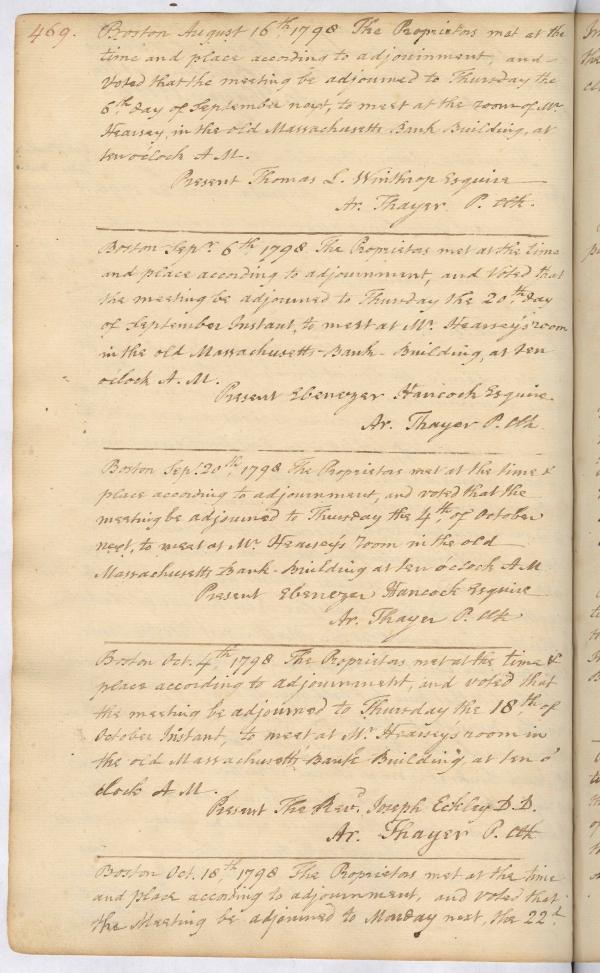 469.
Boston August 16th 1798 The Proprietors met at the
time and place according to adjournment, and
Voted that the meeting be adjourned to Thursday the
6th day of September next, to meet at the room of Mr
Hearsey, in the old Massachusetts Bank Building, at
ten o'clock A M.
Present Thomas L. Winthrop Esquire
Ar. Thayer P. Clk.
Boston Sepr. 6th 1798 The Proprietors met at the time
and place according to adjournment, and Voted that
the meeting be adjourned to Thursday the 20th day
of September Instant, to meet at Mr. Hearsey's room
in the old Massachusetts-Bank-Building, at ten
o'clock A. M.
Present Ebenezer Hancock Esquire
Ar. Thayer P. Clk
Boston Sepr. 20th 1798 The Proprietors met at the time &
place according to adjournment, and voted that the
meeting be adjourned to Thursday the 4th of October
next, to meet at Mr. Hearsey's room in the old
Massachusetts Bank-Building at ten o'clock A M
Present Ebenezer Hancock Esquire
Ar. Thayer P. Clk
Boston Oct. 4th 1798 The Proprietors met at the time &
place according to adjournment, and voted that
the meeting be adjourned to Thursday the 18th of
October Instant, to meet at Mr. Hearsey's room in
the old Massachusetts Bank Building, at ten o'
clock A M.
Present The Revd. Joseph Eckley D.D.
Ar. Thayer P. Clk
Boston Oct. 18th 1798 The Proprietors met at the time
and place according to adjournment, and voted that
the Meeting be adjourned to Monday next, the 22d